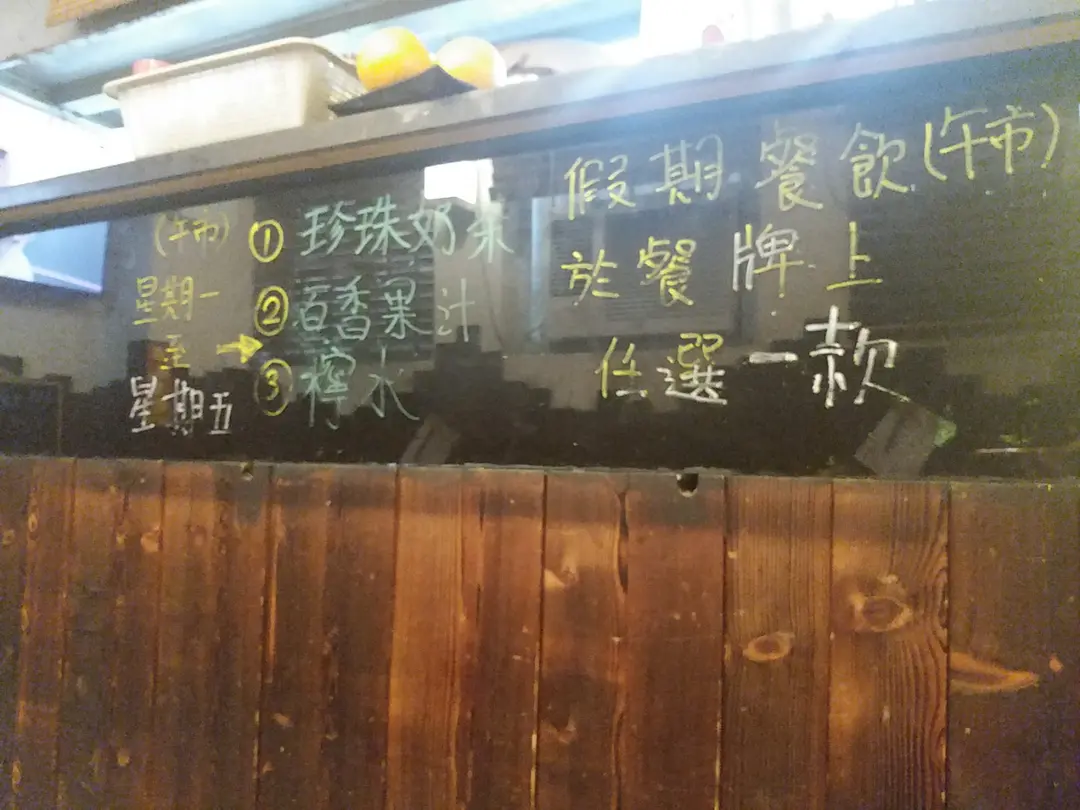 (午市)
星期一
至 →
星期五
① 珍珠奶茶
② 百香果汁
③ 檸水
假期餐飲(午市)
於餐牌上
任選一款